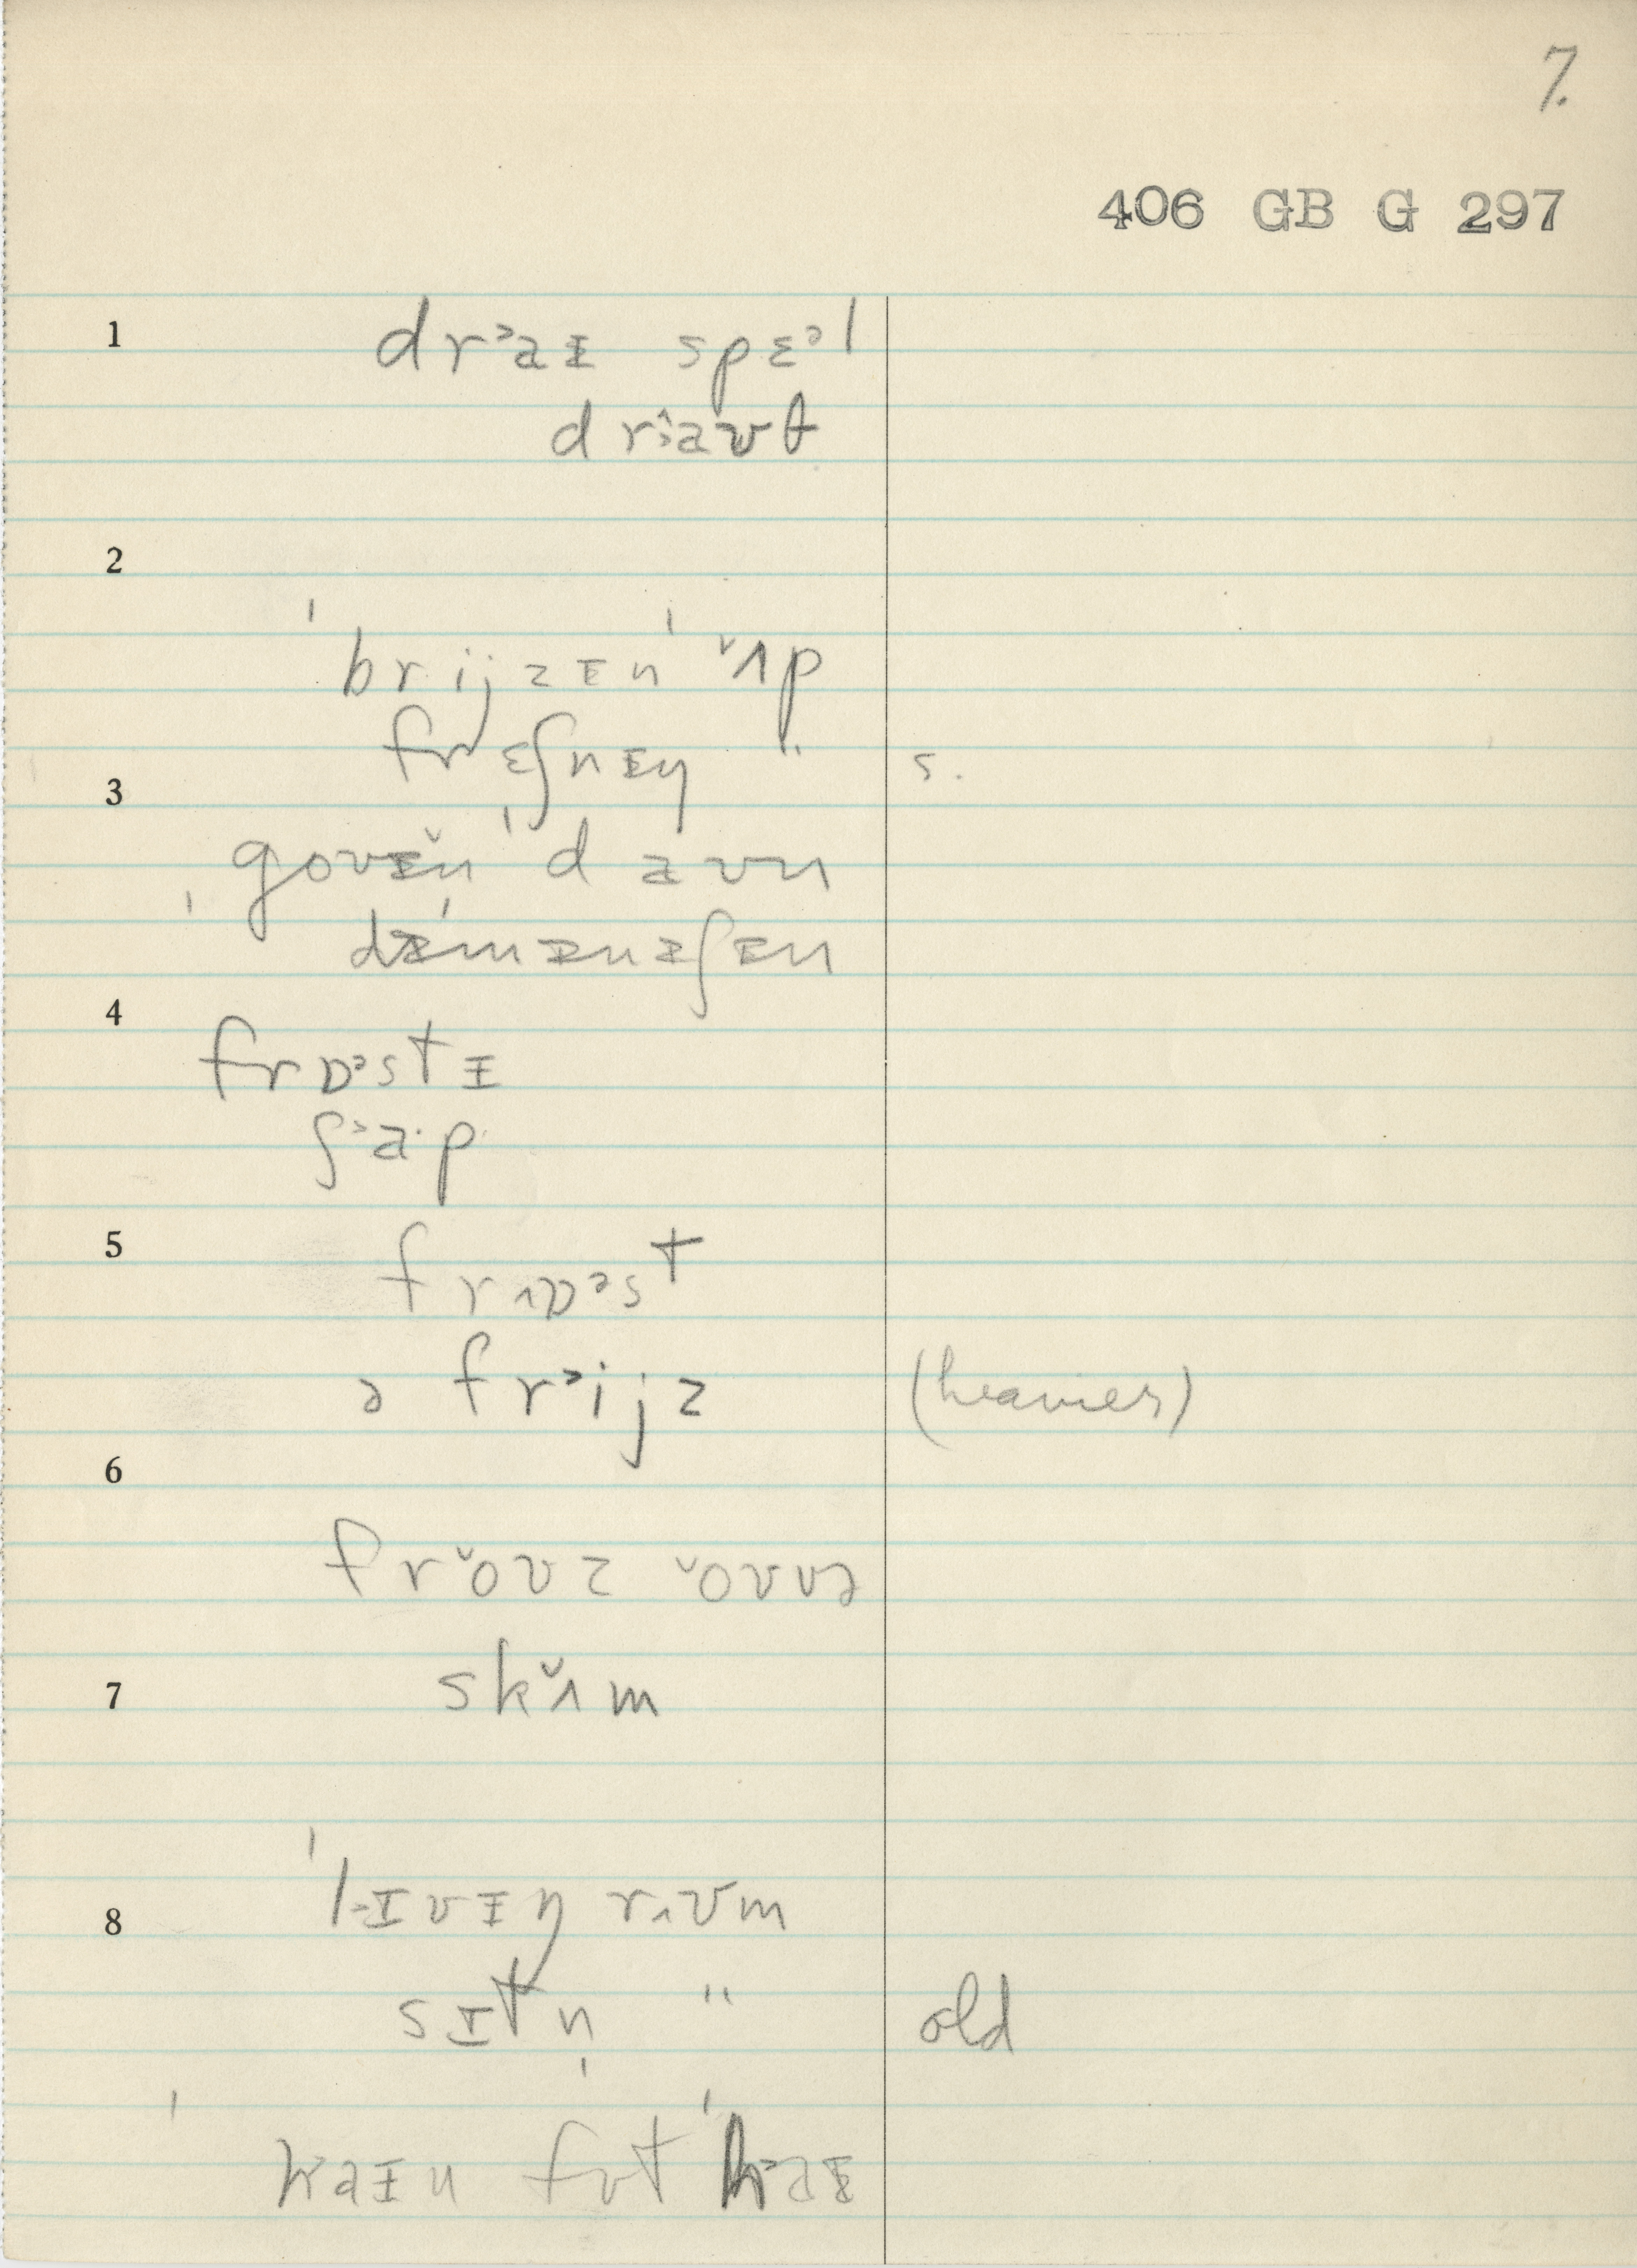 7.
406 GB G 297
1 dr˃aᵻ spɛᵊl
dr˃̂aʊt
2
ˈbrijzᵻnˈ ˅ʌp
frɛʃnᵻŋ " s.
3
ˌgoʊᵻ̆nˈdaʊn
ˌdᵻˈmᵻnᵻʃᵻn
4
frɒᵊstɪ
ʃ˃a·p
5 frɒᵊst
ə fr˃ijz (heavier)
6
fr˅oʊz ˅oʊvə
7 sk˅ʌm
8 ˈl˃ɪvɪŋ rʊm
sɪtn̩ " old
ˈnaɪn fʊt ˈh˃aɪ